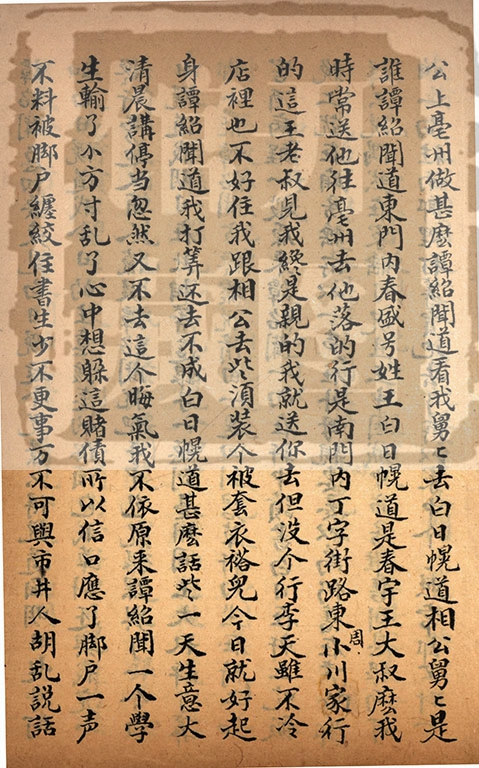 公上亳州做甚麽譚紹聞道看我舅〻去白日幌道相公舅〻是
誰譚紹聞道東門内春盛号姓王白日幌道是春宇王大叔麽我
時常送他徃亳州去他落的行是南門内丁字街路東小川周家行
的這王老叔見我纔〻是親的我就送你去但没个行李天雖不冷
店裡也不好住我跟相公去些須装个被套衣褡兒今日就好起
身譚紹聞道我打筭还去不成白日幌道甚麽話些〻一天生意大
清晨講停当忽然又不去這个晦氣我不依原来譚紹聞一个學
生輸了小方寸乱了心中想躲這賭債所以信口應了脚户一声
不料被脚户纏絞住書生少不更事万不可與市井人胡乱説話